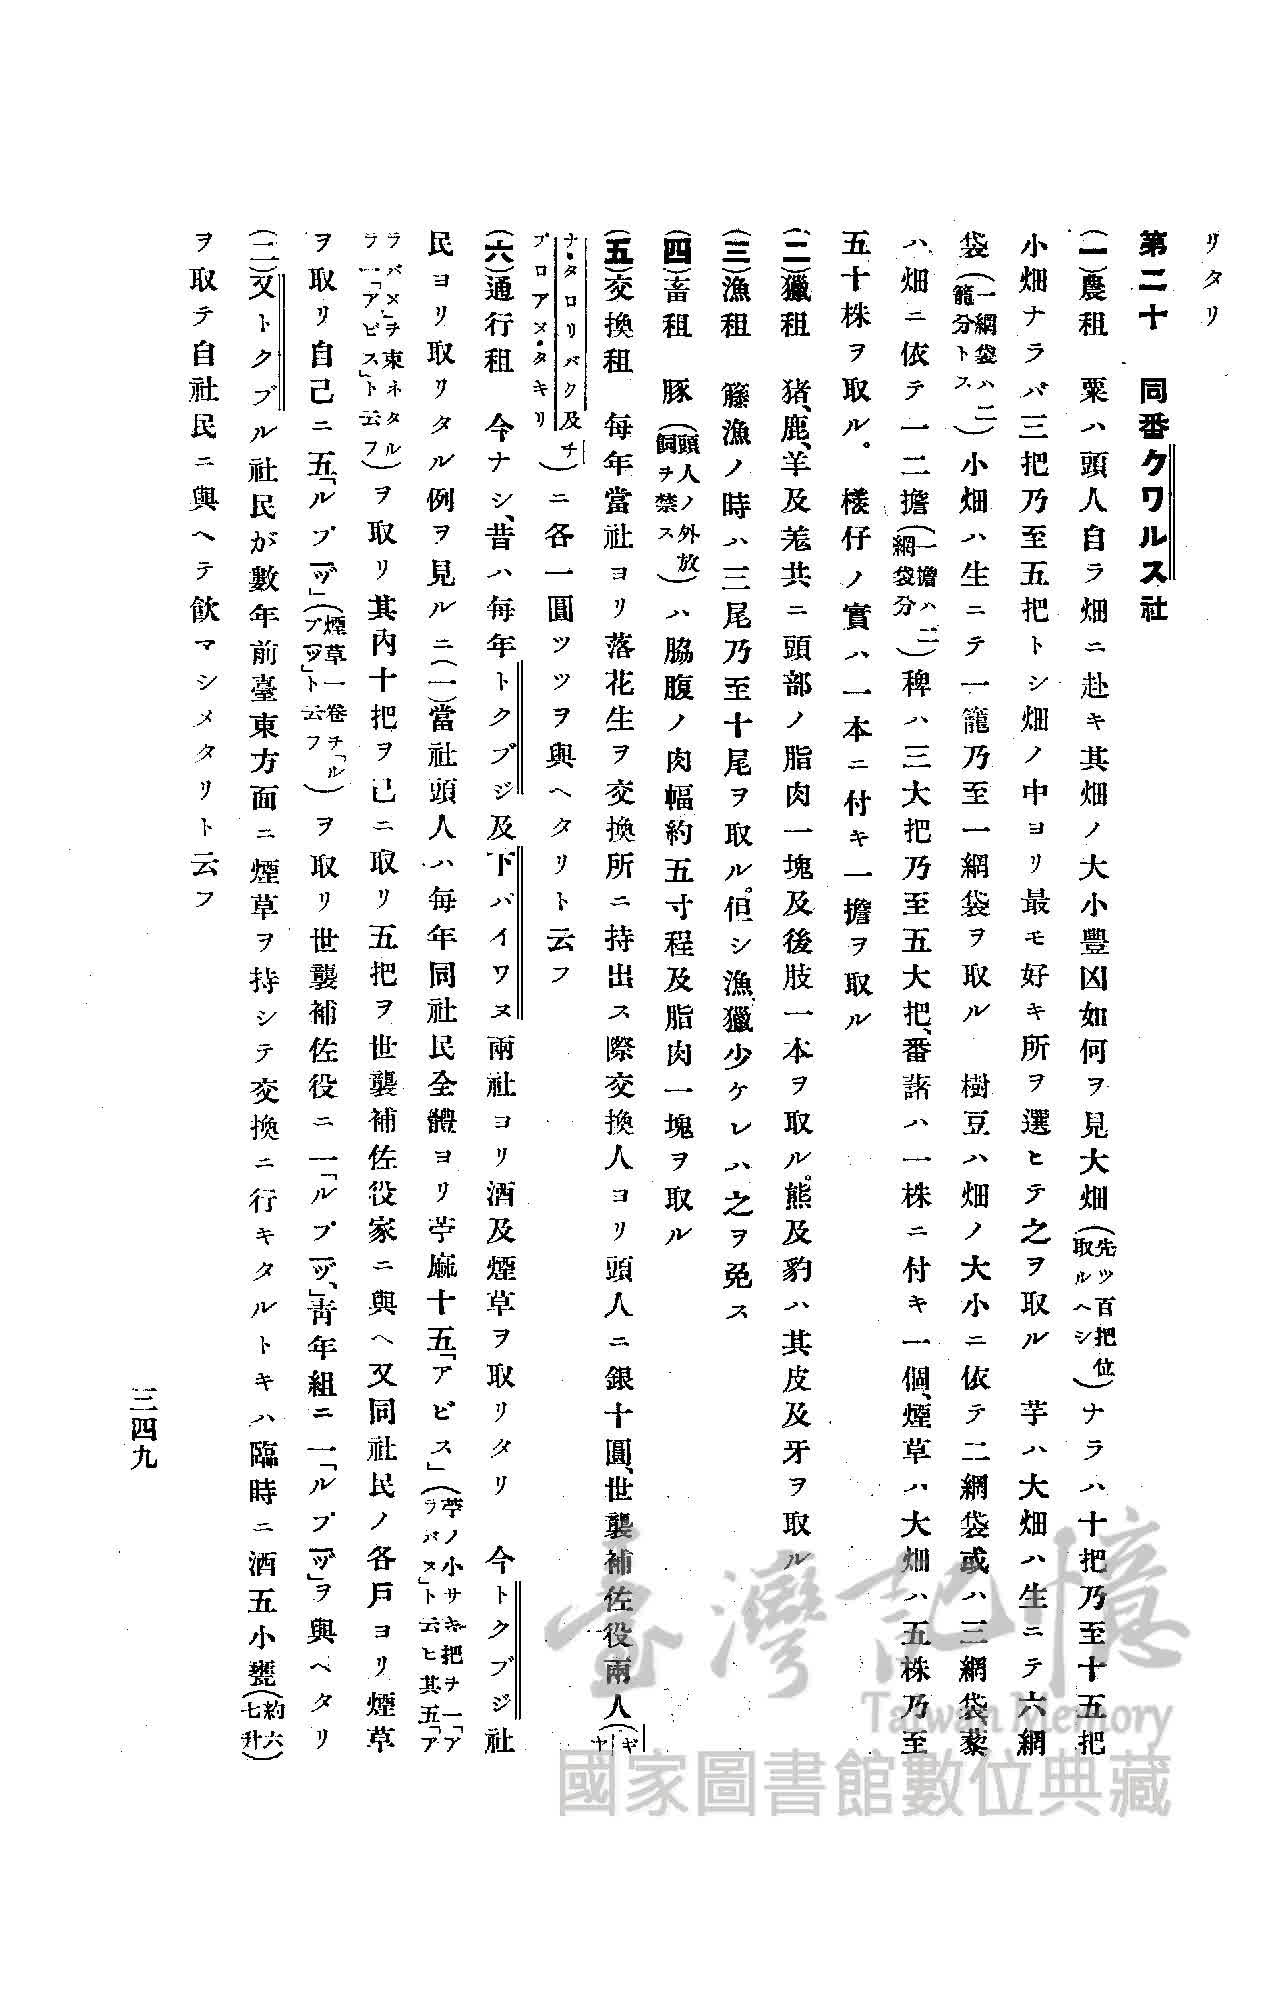 リタリ
第二十　同番クワルス社
(一)農租　粟ハ頭人自ラ畑ニ赴キ其畑ノ大小豐凶如何ヲ見大畑(先ヅ百把位取ルヘシ)ナラハ十把乃至十五把
小畑ナラバ三把乃至五把トシ畑ノ中ヨリ最モ好キ所ヲ選ヒテ之ヲ取ル　芋ハ大畑ハ生ニテ六網
袋(一網袋ハ二籠分トス)小畑ハ生ニテ一籠乃至一網袋ヲ取ル　樹豆ハ畑ノ大小ニ依テ二網袋或ハ三網袋、藜
ハ畑ニ依テ一二擔(一擔ハ二網袋分)稗ハ三大把乃至五大把、番藷ハ一株ニ付キ一個、煙草ハ大畑ハ五株乃至
五十株ヲ取ル。檨仔ノ實ハ一本ニ付キ一擔ヲ取ル
(二)獵租　猪、鹿、羊及羗共ニ頭部ノ脂肉一塊及後肢一本ヲ取ル。熊及豹ハ其皮及牙ヲ取ル
(三)漁租　籐漁ノ時ハ三尾乃至十尾ヲ取ル。但シ漁獵少ケレハ之ヲ免ス
(四)畜租　豚(頭人ノ外放飼ヲ禁ス)ハ脇腹ノ肉幅約五寸程及脂肉一塊ヲ取ル
(五)交換租　每年當社ヨリ落花生ヲ交換所ニ持出ス際交換人ヨリ頭人ニ銀十圓、世襲補佐役兩人(ギヤ
ナ・タロリバク及チプロアメ・タキリ)ニ各一圓ツツヲ與ヘタリト云フ
(六)通行租　今ナシ、昔ハ每年トクブジ及下パイワヌ兩社ヨリ酒及煙草ヲ取リタリ　今トクブジ社
民ヨリ取リタル例ヲ見ルニ(一)當社頭人ハ每年同社民全體ヨリ苧麻十五「アビス」(苧ノ小サキ把ヲ一「アラバヌ」ト云ヒ其五「ア
ラバメ」ヲ束ネタルヲ一「アビス」ト云フ)ヲ取リ其內十把ヲ己ニ取リ五把ヲ世襲補佐役家ニ與ヘ又同社民ノ各戶ヨリ煙草
ヲ取リ自己ニ五「ルプヅ」(煙草一卷ヲ「ルプヅ」ト云フ)ヲ取リ世襲補佐役ニ一「ルプヅ」、靑年組ニ一「ルプヅ」ヲ與ヘタリ
(二)又トクブル社民が數年前臺東方面ニ煙草ヲ持シテ交換ニ行キタルトキハ臨時ニ酒五小甕(約六七升)
ヲ取テ自社民ニ與ヘテ飮マシメタリト云フ
三四九
臺灣記憶
Taiwan Memory
國家圖書館數位典藏